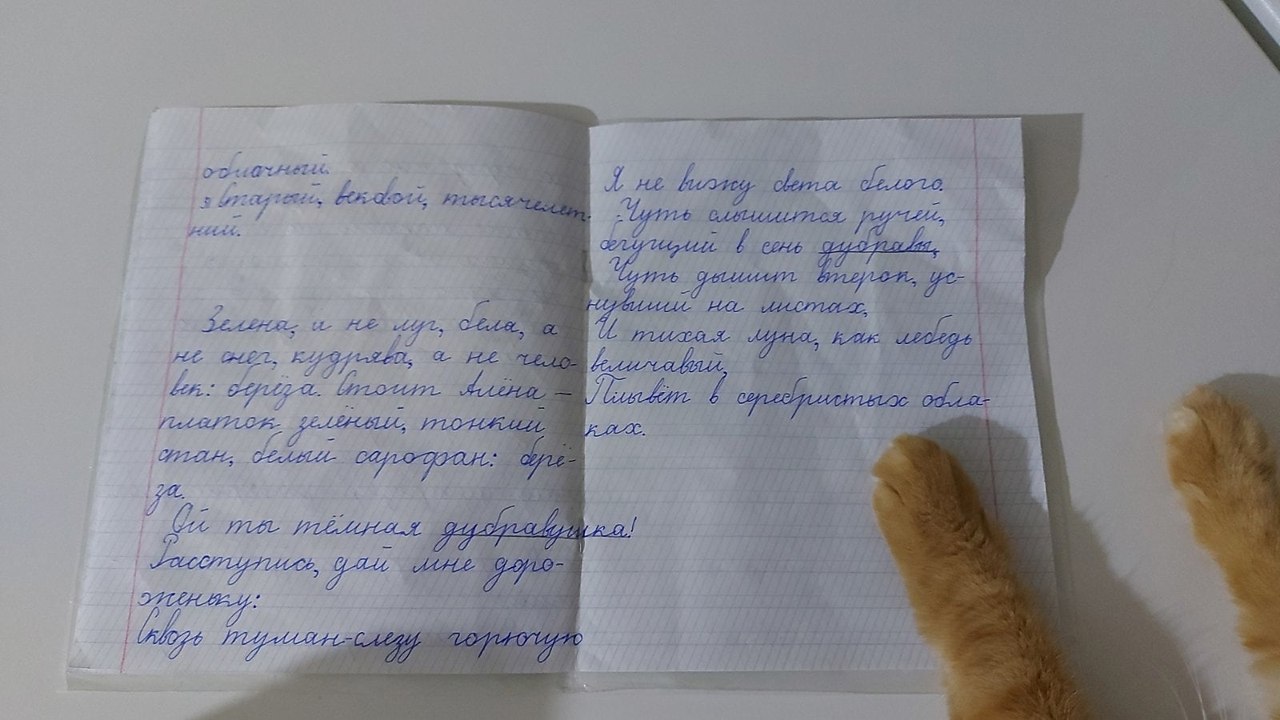 облачный.
я Старый, вековой, тысячелет-
ний.
Зелена, а не луг, бела, а
не снег, кудрява, а не чело-
век: берёза. Стоит Алёна –
платок зелёный, тонкий
стан, белый сарофан: берё-
за.
Ой ты тёмная дубравушка!
Расступись, дай мне доро-
женьку:
Сквозь туман-слезу горючую
Я не вижу света белого.
Чуть слышится ручей,
бегущий в сень дубравы,
Чуть дышит втерок, ус-
нувший на листах,
И тихая луна, как лебедь
величавый,
Плывёт в серебристых обла-
ках.